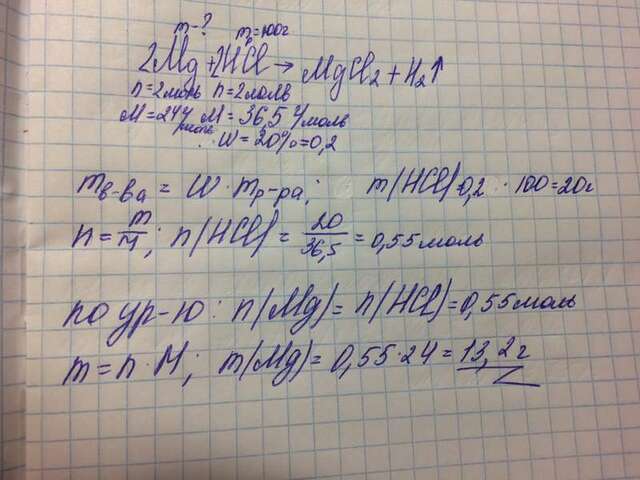 m-? m=100г
2Mg+2HCl→MgCl2+H2↑
n=2моль n=2моль
M=24г/моль M=36,5г/моль
W=20%=0,2
mв-ва=W·mр-ра; m(HCl)=0,2·100=20г
n=m/M; n(HCl)=20/36,5=0,55моль
по ур-ю: n(Mg)=n(HCl)=0,55моль
m=n·M; m(Mg)=0,55·24=13,2г